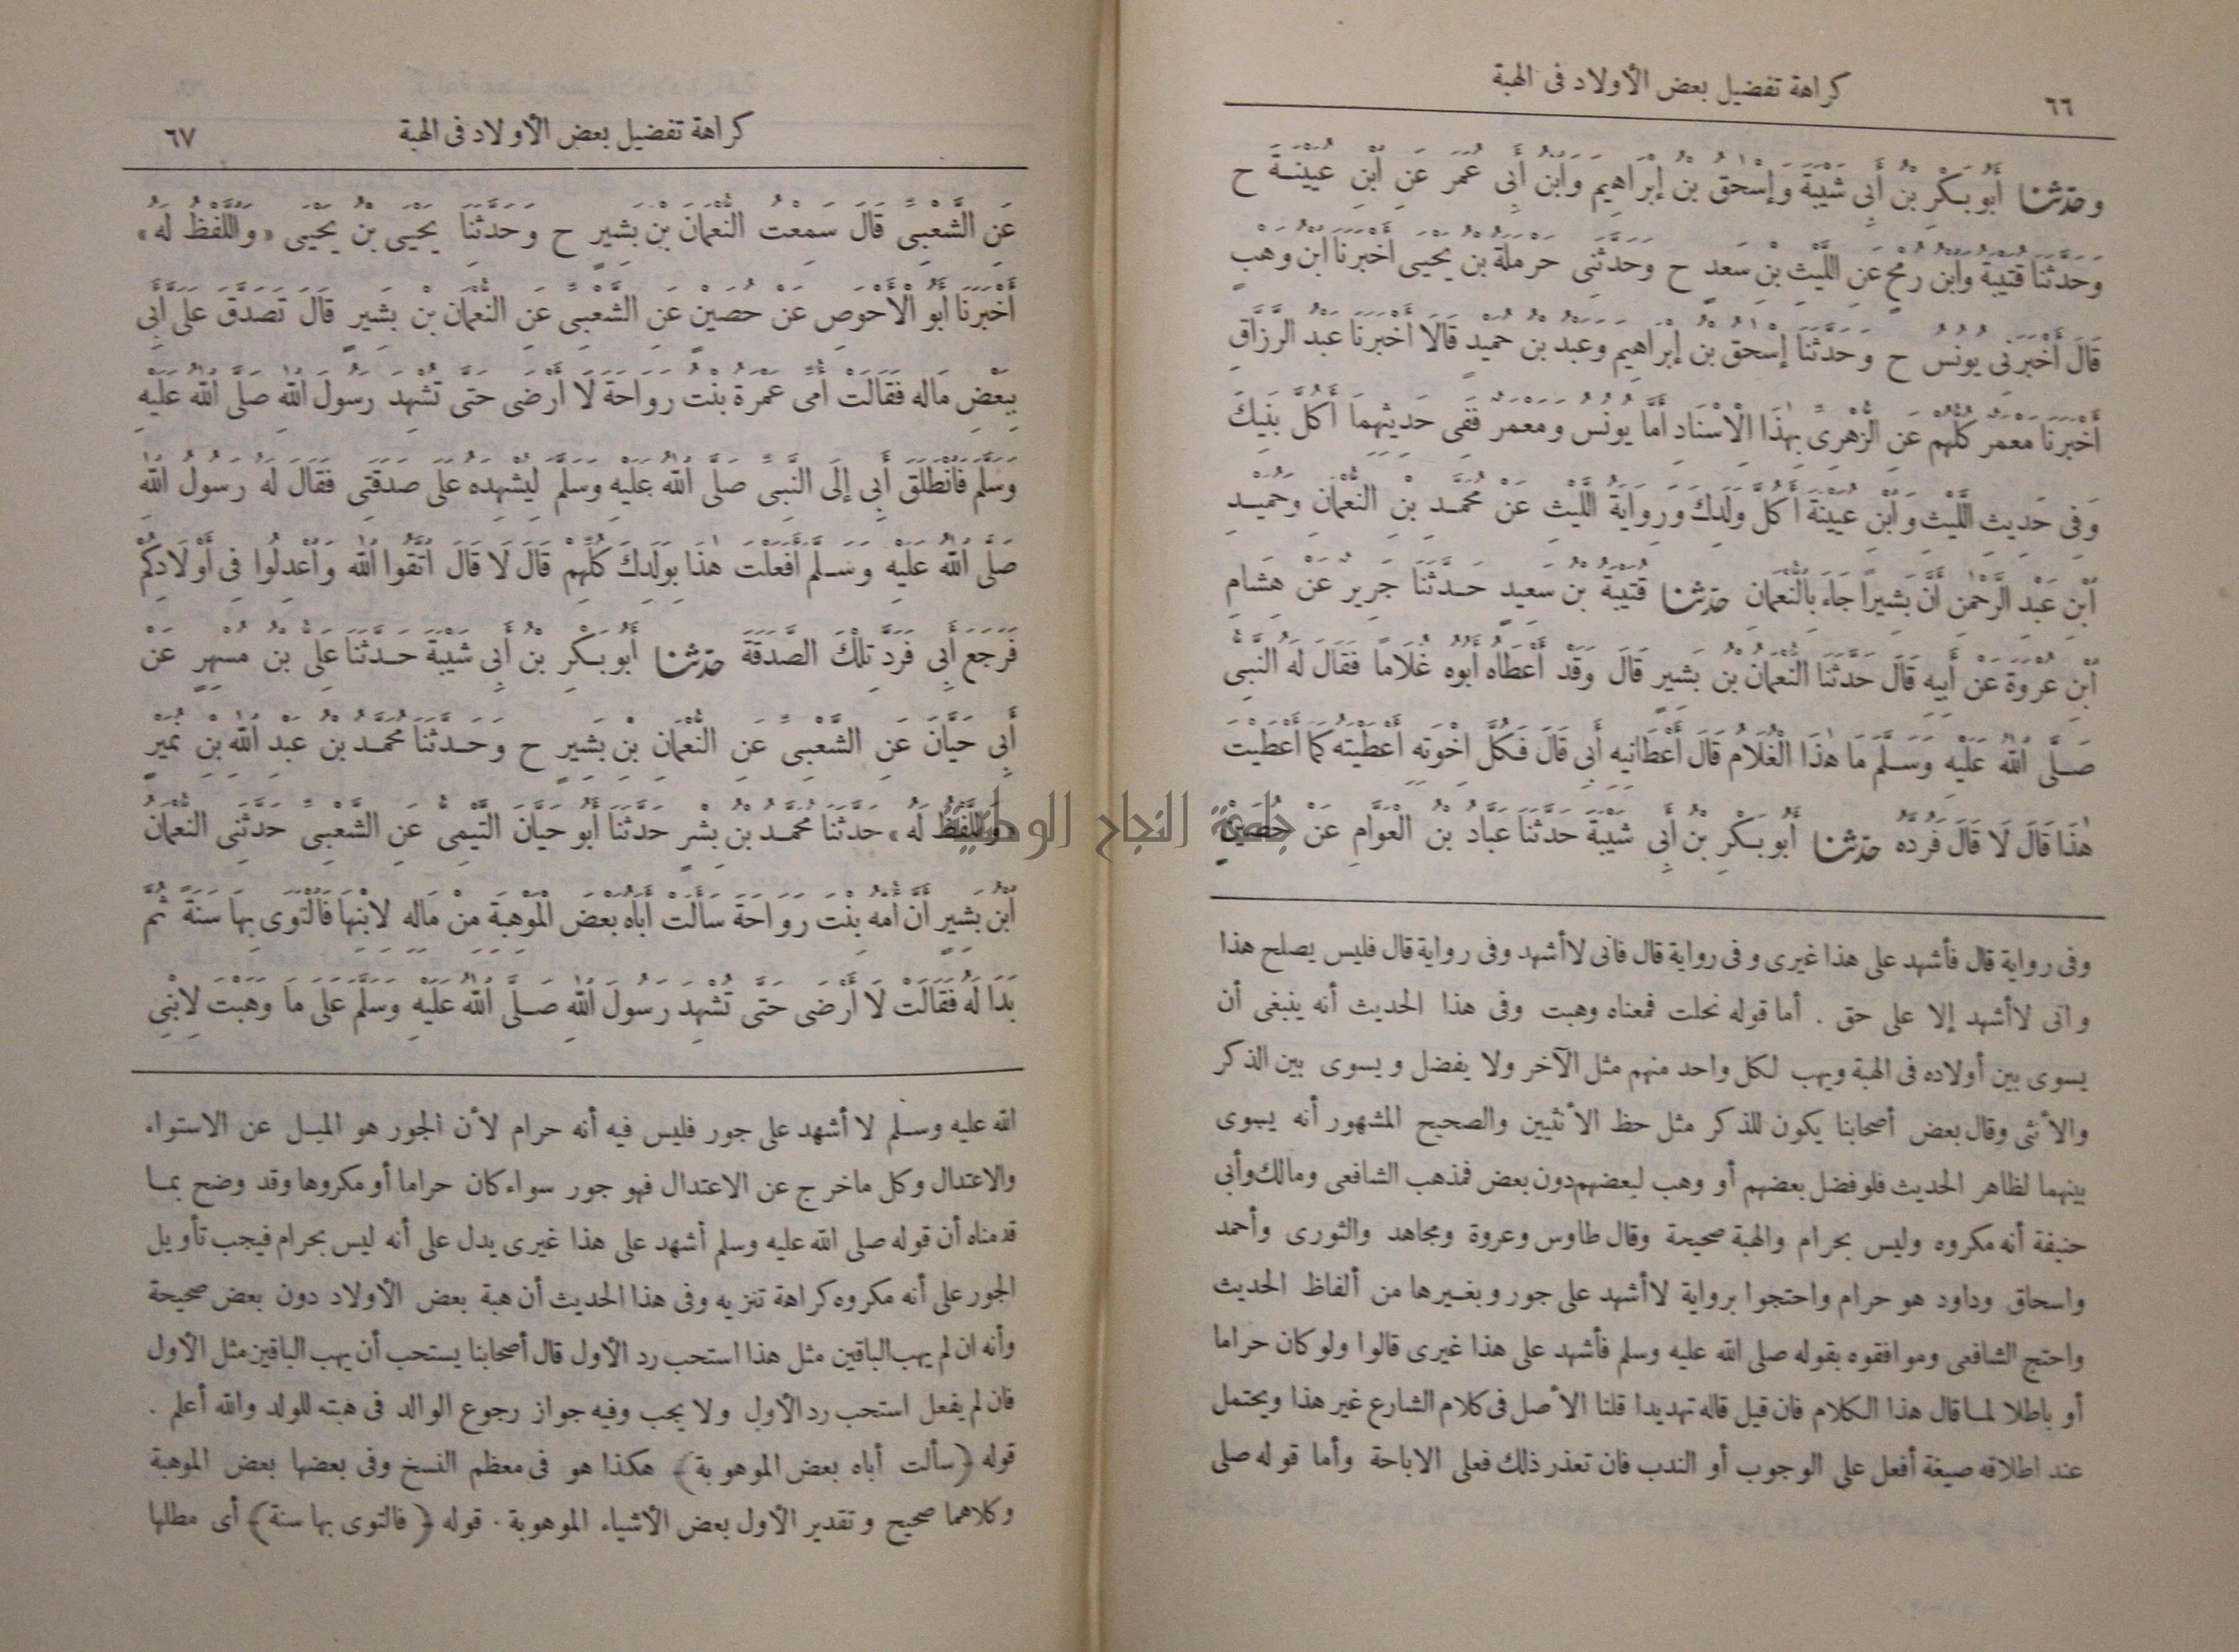 كراهة تفضيل بعض الأولاد فى الهبة
٦٦
وحَدَّثَنَا أَبُو بَكْرِ بْنُ أَبِى شَيْبَةَ وَإِسْحٰقُ بْنُ إِبْرَاهِيمَ وَابْنُ أَبِى عُمَرَ عَنِ ابْنِ عُيَيْنَةَ ح
وَحَدَّثَنَا قُتَيْبَةُ وَابْنُ رُمْحٍ عَنِ اللَّيْثِ بْنِ سَعْدٍ ح وَحَدَّثَنِى حَرْمَلَةُ بْنُ يَحْيَى أَخْبَرَنَا ابْنُ وَهْبٍ
قَالَ أَخْبَرَنِى يُونُسُ ح وَحَدَّثَنَا إِسْحٰقُ بْنُ إِبْرَاهِيمَ وَعَبْدُ بْنُ حُمَيْدٍ قَالَا أَخْبَرَنَا عَبْدُ الرَّزَّاقِ
أَخْبَرَنَا مَعْمَرٌ كُلُّهُمْ عَنِ الزُّهْرِىِّ بِهٰذَا الْإِسْنَادِ أَمَّا يُونُسُ وَمَعْمَرٌ فَفِى حَدِيثِهِمَا أَكُلَّ بَنِيكَ
وَفِى حَدِيثِ اللَّيْثِ وَابْنِ عُيَيْنَةَ أَكُلَّ وَلَدِكَ وَرِوَايَةُ اللَّيْثِ عَنْ مُحَمَّدِ بْنِ النُّعْمَانِ وَحُمَيْدِ
ابْنِ عَبْدِ الرَّحْمٰنِ أَنَّ بَشِيرًا جَاءَ بِالنُّعْمَانِ حَدَّثَنَا قُتَيْبَةُ بْنُ سَعِيدٍ حَدَّثَنَا جَرِيرٌ عَنْ هِشَامِ
ابْنِ عُرْوَةَ عَنْ أَبِيهِ قَالَ حَدَّثَنَا النُّعْمَانُ بْنُ بَشِيرٍ قَالَ وَقَدْ أَعْطَاهُ أَبُوهُ غُلَامًا فَقَالَ لَهُ النَّبِىُّ
صَلَّى اللهُ عَلَيْهِ وَسَلَّمَ مَا هٰذَا الْغُلَامُ قَالَ أَعْطَانِيهِ أَبِى قَالَ فَكُلَّ إِخْوَتِهِ أَعْطَيْتَهُ كَمَا أَعْطَيْتَ
هٰذَا قَالَ لَا قَالَ فَرُدَّهُ حَدَّثَنَا أَبُو بَكْرِ بْنُ أَبِى شَيْبَةَ حَدَّثَنَا عَبَّادُ بْنُ الْعَوَّامِ عَنْ حُصَيْنٍ
وفى رواية قال فأشهد على هذا غيرى وفى رواية قال فانى لاأشهد وفى رواية قال فليس يصلح هذا
وانى لاأشهد إلا على حق . أما قوله نحلت فمعناه وهبت وفى هذا الحديث أنه ينبغى أن
يسوى بين أولاده فى الهبة ويهب لكل واحد منهم مثل الآخر ولا يفضل ويسوى بين الذكر
والأنثى وقال بعض أصحابنا يكون للذكر مثل حظ الأنثيين والصحيح المشهور أنه يسوى
بينهما لظاهر الحديث فلو فضل بعضهم أو وهب لبعضهم دون بعض فمذهب الشافعى ومالك وأبى
حنيفة أنه مكروه وليس بحرام والهبة صحيحة وقال طاوس وعروة ومجاهد والثورى وأحمد
واسحاق وداود هو حرام واحتجوا برواية لاأشهد على جور وبغيرها من ألفاظ الحديث
واحتج الشافعى وموافقوه بقوله صلى الله عليه وسلم فأشهد على هذا غيرى قالوا ولو كان حراما
أو باطلا لما قال هذا الكلام فان قيل قاله تهديدا قلنا الأصل فى كلام الشارع غير هذا ويحتمل
عند اطلاقه صيغة أفعل على الوجوب أو الندب فان تعذر ذلك فعلى الاباحة وأما قوله صلى
كراهة تفضيل بعض الأولاد فى الهبة
٦٧
عَنِ الشَّعْبِىِّ قَالَ سَمِعْتُ النُّعْمَانَ بْنَ بَشِيرٍ ح وَحَدَّثَنَا يَحْيَى بْنُ يَحْيَى «وَاللَّفْظُ لَهُ»
أَخْبَرَنَا أَبُو الْأَحْوَصِ عَنْ حُصَيْنٍ عَنِ الشَّعْبِىِّ عَنِ النُّعْمَانِ بْنِ بَشِيرٍ قَالَ تَصَدَّقَ عَلَىَّ أَبِى
بِبَعْضِ مَالِهِ فَقَالَتْ أُمِّى عَمْرَةُ بِنْتُ رَوَاحَةَ لَا أَرْضَى حَتَّى تُشْهِدَ رَسُولَ اللهِ صَلَّى اللهُ عَلَيْهِ
وَسَلَّمَ فَانْطَلَقَ أَبِى إِلَى النَّبِىِّ صَلَّى اللهُ عَلَيْهِ وَسَلَّمَ لِيُشْهِدَهُ عَلَى صَدَقَتِى فَقَالَ لَهُ رَسُولُ اللهِ
صَلَّى اللهُ عَلَيْهِ وَسَلَّمَ أَفَعَلْتَ هٰذَا بِوَلَدِكَ كُلِّهِمْ قَالَ لَا قَالَ اتَّقُوا اللهَ وَاعْدِلُوا فِى أَوْلَادِكُمْ
فَرَجَعَ أَبِى فَرَدَّ تِلْكَ الصَّدَقَةَ حَدَّثَنَا أَبُو بَكْرِ بْنُ أَبِى شَيْبَةَ حَدَّثَنَا عَلِىُّ بْنُ مُسْهِرٍ عَنْ
أَبِى حَيَّانَ عَنِ الشَّعْبِىِّ عَنِ النُّعْمَانِ بْنِ بَشِيرٍ ح وَحَدَّثَنَا مُحَمَّدُ بْنُ عَبْدِ اللهِ بْنِ نُمَيْرٍ
«وَاللَّفْظُ لَهُ» حَدَّثَنَا مُحَمَّدُ بْنُ بِشْرٍ حَدَّثَنَا أَبُو حَيَّانَ التَّيْمِىُّ عَنِ الشَّعْبِىِّ حَدَّثَنِى النُّعْمَانُ
ابْنُ بَشِيرٍ أَنَّ أُمَّهُ بِنْتَ رَوَاحَةَ سَأَلَتْ أَبَاهُ بَعْضَ الْمَوْهِبَةِ مِنْ مَالِهِ لِابْنِهَا فَالْتَوَى بِهَا سَنَةً ثُمَّ
بَدَا لَهُ فَقَالَتْ لَا أَرْضَى حَتَّى تُشْهِدَ رَسُولَ اللهِ صَلَّى اللهُ عَلَيْهِ وَسَلَّمَ عَلَى مَا وَهَبْتَ لِابْنِى
الله عليه وسلم لا أشهد على جور فليس فيه أنه حرام لأن الجور هو الميل عن الاستواء
والاعتدال وكل ماخرج عن الاعتدال فهو جور سواء كان حراما أو مكروها وقد وضح بما
قدمناه أن قوله صلى الله عليه وسلم أشهد على هذا غيرى يدل على أنه ليس بحرام فيجب تأويل
الجور على أنه مكروه كراهة تنزيه وفى هذا الحديث أن هبة بعض الأولاد دون بعض صحيحة
وأنه ان لم يهب الباقين مثل هذا استحب رد الأول قال أصحابنا يستحب أن يهب الباقين مثل الأول
فان لم يفعل استحب رد الأول ولا يجب وفيه جواز رجوع الوالد فى هبته للولد والله أعلم .
قوله ﴿سألت أباه بعض الموهوبة﴾ هكذا هو فى معظم النسخ وفى بعضها بعض الموهبة
وكلاهما صحيح وتقدير الأول بعض الأشياء الموهوبة . قوله ﴿فالتوى بها سنة﴾ أى مطلها
جامعة النجاح الوطنية